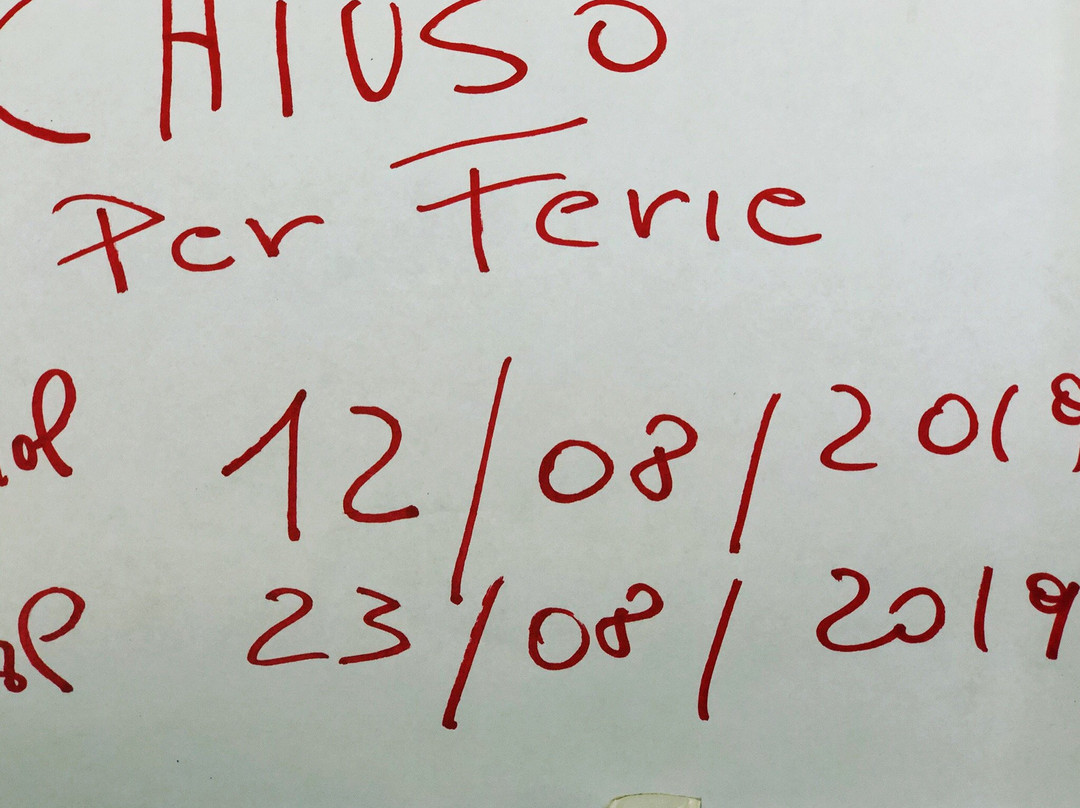 CHIUSO
Per Ferie
12/08/2019
23/08/2019